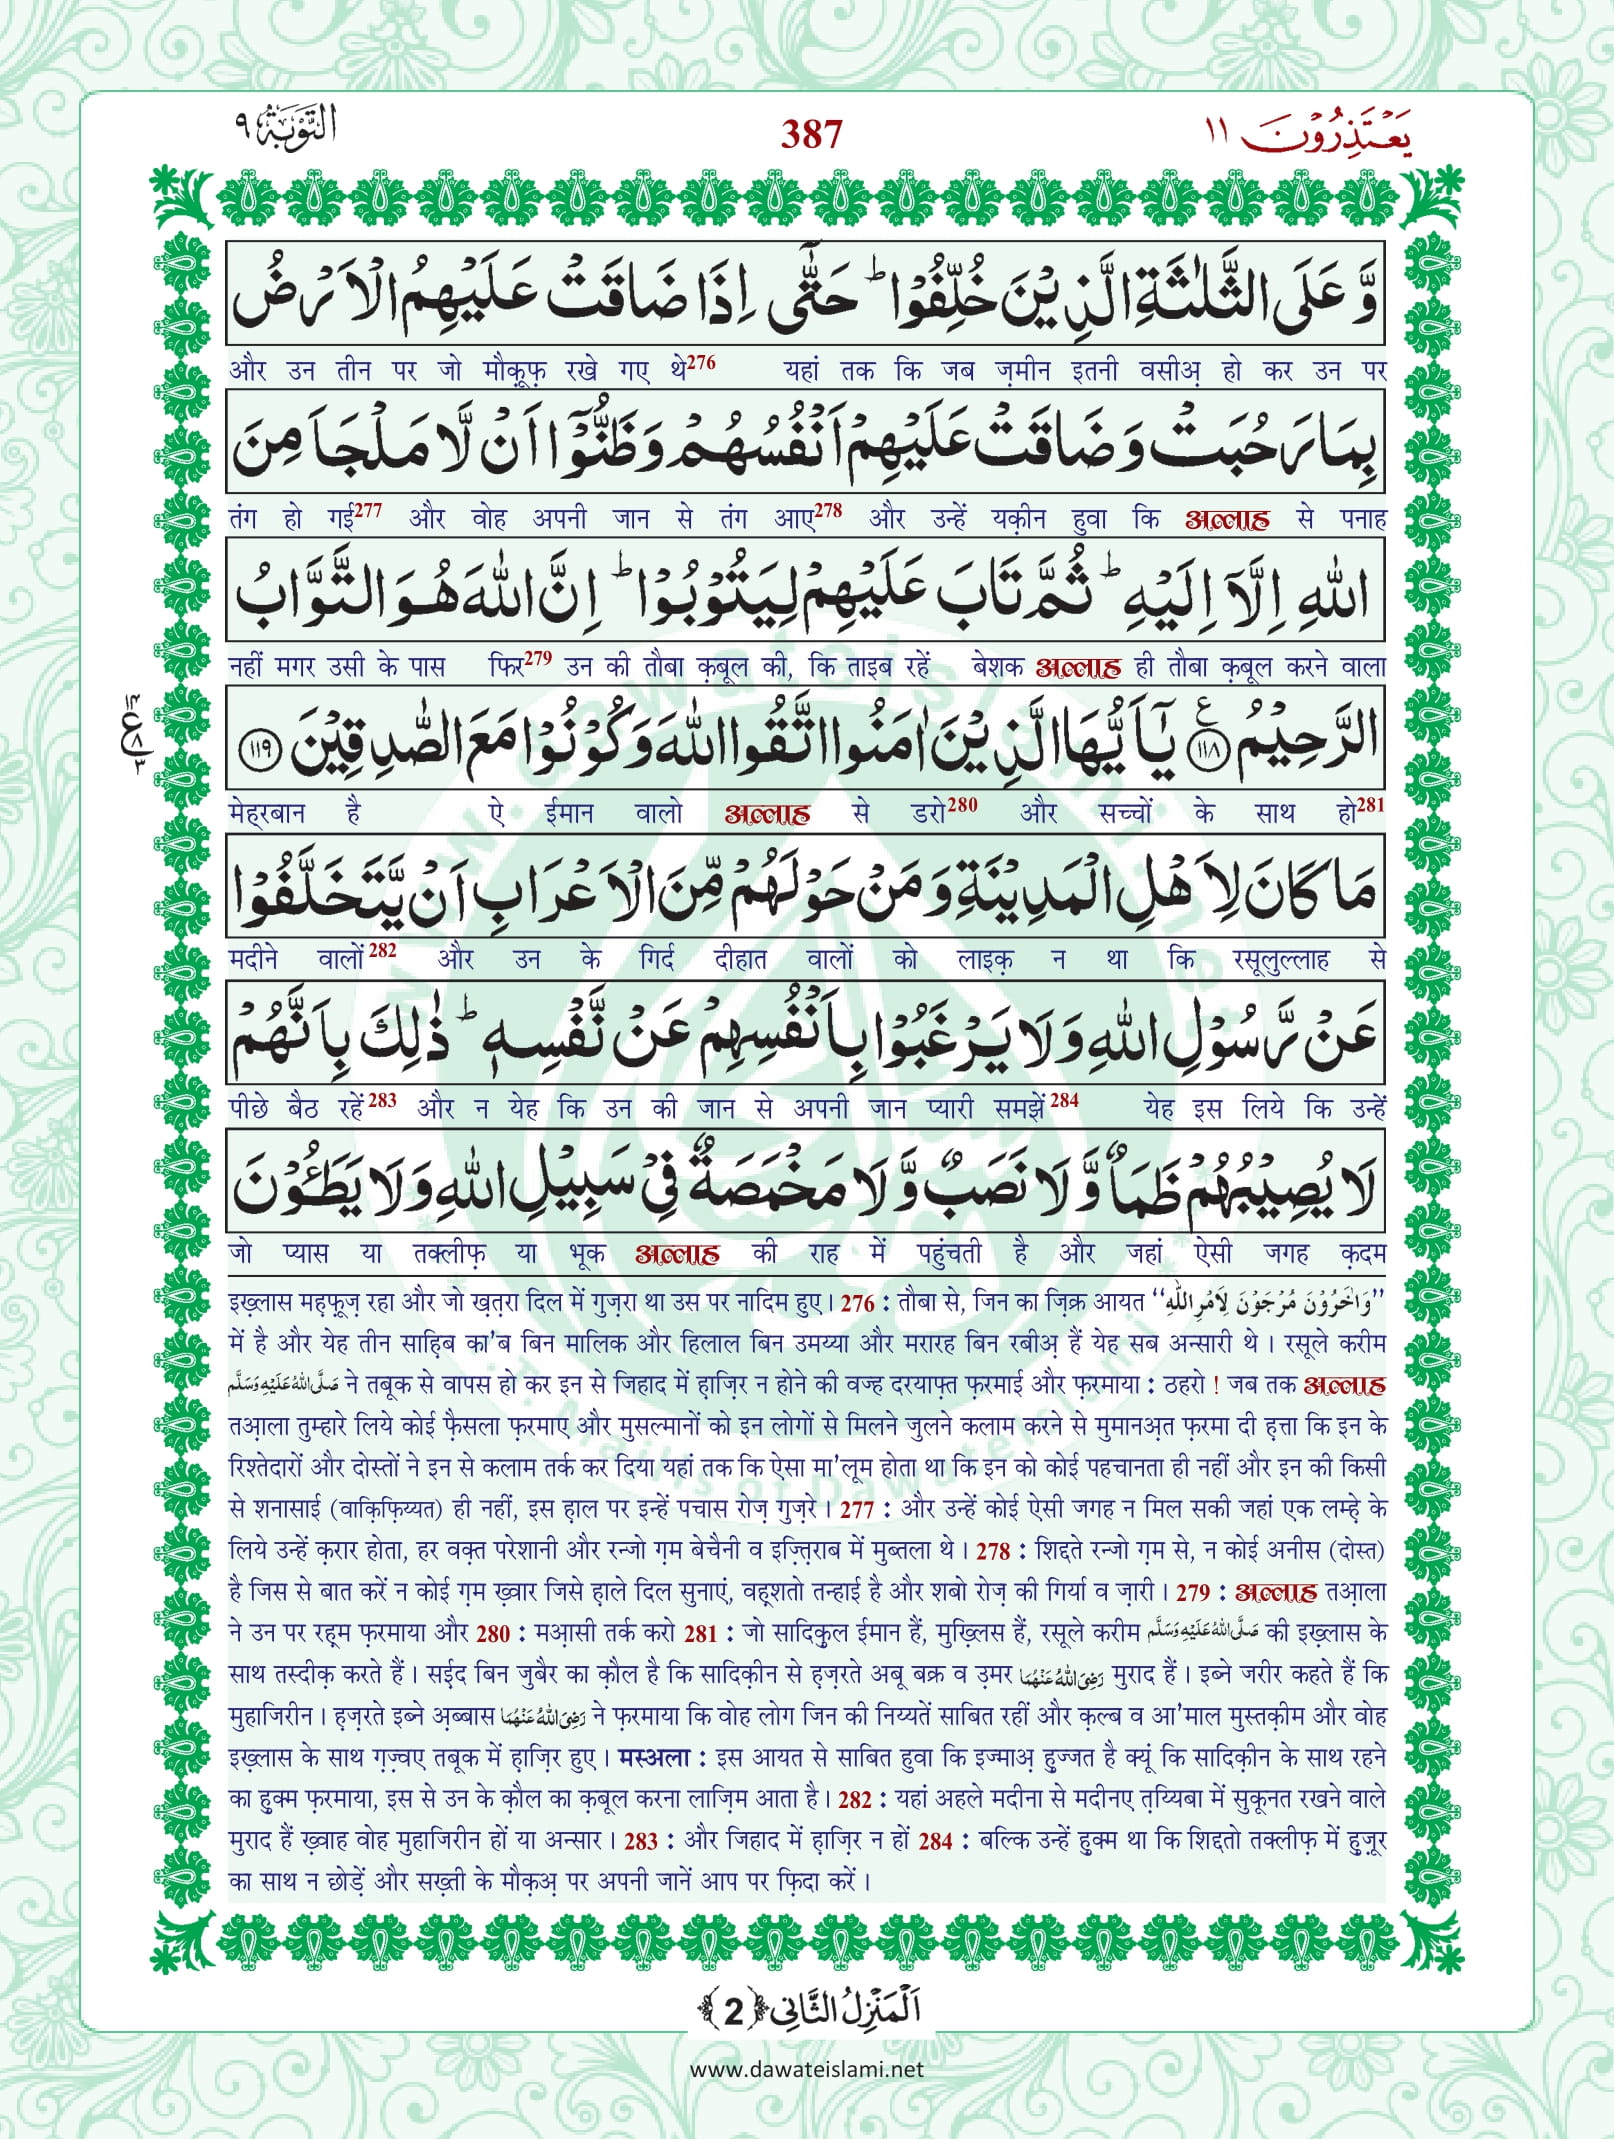 يَعْتَذِرُوْنَ ١١ 387 التَّوْبَة ٩
وَّ عَلَى الثَّلٰثَةِ الَّذِیْنَ خُلِّفُوْاؕ حَتّٰۤى اِذَا ضَاقَتْ عَلَیْهِمُ الْاَرْضُ
और उन तीन पर जो मौक़ूफ़ रखे गए थे276 यहां तक कि जब ज़मीन इतनी वसीअ़ हो कर उन पर
بِمَا رَحُبَتْ وَ ضَاقَتْ عَلَیْهِمْ اَنْفُسُهُمْ وَ ظَنُّوْۤا اَنْ لَّا مَلْجَاَ مِنَ
तंग हो गई277 और वोह अपनी जान से तंग आए278 और उन्हें यक़ीन हुवा कि अल्लाह से पनाह
اللّٰهِ اِلَّاۤ اِلَیْهِؕ ثُمَّ تَابَ عَلَیْهِمْ لِیَتُوْبُوْاؕ اِنَّ اللّٰهَ هُوَ التَّوَّابُ
नहीं मगर उसी के पास फिर279 उन की तौबा क़बूल की, कि ताइब रहें बेशक अल्लाह ही तौबा क़बूल करने वाला
الرَّحِیْمُ۠ ﴿١١٨﴾ یٰۤاَیُّهَا الَّذِیْنَ اٰمَنُوا اتَّقُوا اللّٰهَ وَ كُوْنُوْا مَعَ الصّٰدِقِیْنَ ﴿١١٩﴾
١٤ ع ٨ ٣
मेह्‌रबान है ऐ ईमान वालो अल्लाह से डरो280 और सच्चों के साथ हो281
مَا كَانَ لِاَهْلِ الْمَدِیْنَةِ وَ مَنْ حَوْلَهُمْ مِّنَ الْاَعْرَابِ اَنْ یَّتَخَلَّفُوْا
मदीने वालों282 और उन के गिर्द दीहात वालों को लाइक़ न था कि रसूलुल्लाह से
عَنْ رَّسُوْلِ اللّٰهِ وَ لَا یَرْغَبُوْا بِاَنْفُسِهِمْ عَنْ نَّفْسِهٖؕ ذٰلِكَ بِاَنَّهُمْ
पीछे बैठ रहें283 और न येह कि उन की जान से अपनी जान प्यारी समझें284 येह इस लिये कि उन्हें
لَا یُصِیْبُهُمْ ظَمَاٌ وَّ لَا نَصَبٌ وَّ لَا مَخْمَصَةٌ فِیْ سَبِیْلِ اللّٰهِ وَ لَا یَطَـُٔوْنَ
जो प्यास या तक्लीफ़ या भूक अल्लाह की राह में पहुंचती है और जहां ऐसी जगह क़दम
इख़्लास मह़्फ़ूज़ रहा और जो ख़त़रा दिल में गुज़रा था उस पर नादिम हुए। 276 : तौबा से, जिन का ज़िक्र आयत “وَاٰخَرُوْنَ مُرْجَوْنَ لِاَمْرِ اللّٰهِ”
में है और येह तीन साह़िब का'ब बिन मालिक और हिलाल बिन उमय्या और मरारह बिन रबीअ़ हैं येह सब अन्सारी थे। रसूले करीम
صَلَّى اللّٰهُ عَلَيْهِ وَسَلَّم ने तबूक से वापस हो कर इन से जिहाद में ह़ाज़िर न होने की वज्ह दरयाफ़्त फ़रमाई और फ़रमाया : ठहरो ! जब तक अल्लाह
तआ़ला तुम्हारे लिये कोई फ़ैसला फ़रमाए और मुसल्मानों को इन लोगों से मिलने जुलने कलाम करने से मुमानअ़त फ़रमा दी ह़त्ता कि इन के
रिश्तेदारों और दोस्तों ने इन से कलाम तर्क कर दिया यहां तक कि ऐसा मा'लूम होता था कि इन को कोई पहचानता ही नहीं और इन की किसी
से शनासाई (वाक़िफ़िय्यत) ही नहीं, इस ह़ाल पर इन्हें पचास रोज़ गुज़रे। 277 : और उन्हें कोई ऐसी जगह न मिल सकी जहां एक लम्ह़े के
लिये उन्हें क़रार होता, हर वक़्त परेशानी और रन्जो ग़म बेचैनी व इज़्त़िराब में मुब्तला थे। 278 : शिद्दते रन्जो ग़म से, न कोई अनीस (दोस्त)
है जिस से बात करें न कोई ग़म ख़्वार जिसे ह़ाले दिल सुनाएं, वह़्शतो तन्हाई है और शबो रोज़ की गिर्या व ज़ारी। 279 : अल्लाह तआ़ला
ने उन पर रह़्म फ़रमाया और 280 : मआ़सी तर्क करो 281 : जो सादिकुल ईमान हैं, मुख़्लिस हैं, रसूले करीम صَلَّى اللّٰهُ عَلَيْهِ وَسَلَّم की इख़्लास के
साथ तस्दीक़ करते हैं। सई़द बिन जुबैर का क़ौल है कि सादिक़ीन से ह़ज़रते अबू बक्र व उ़मर رَضِیَ اللّٰهُ عَنْهُمَا मुराद हैं। इब्ने जरीर कहते हैं कि
मुहाजिरीन। ह़ज़रते इब्ने अ़ब्बास رَضِیَ اللّٰهُ عَنْهُمَا ने फ़रमाया कि वोह लोग जिन की निय्यतें साबित रहीं और क़ल्ब व आ'माल मुस्तक़ीम और वोह
इख़्लास के साथ ग़ज़्वए तबूक में ह़ाज़िर हुए। मस्अला : इस आयत से साबित हुवा कि इज्माअ़ हु़ज्जत है क्यूं कि सादिक़ीन के साथ रहने
का हु़क्म फ़रमाया, इस से उन के क़ौल का क़बूल करना लाज़िम आता है। 282 : यहां अहले मदीना से मदीनए त़य्यिबा में सुकूनत रखने वाले
मुराद हैं ख़्वाह वोह मुहाजिरीन हों या अन्सार। 283 : और जिहाद में ह़ाज़िर न हों 284 : बल्कि उन्हें हु़क्म था कि शिद्दतो तक्लीफ़ में हु़ज़ूर
का साथ न छोड़ें और सख़्ती के मौक़अ़ पर अपनी जानें आप पर फ़िदा करें।
اَلْمَنْزِلُ الثَّانِی ﴿2﴾
www.dawateislami.net